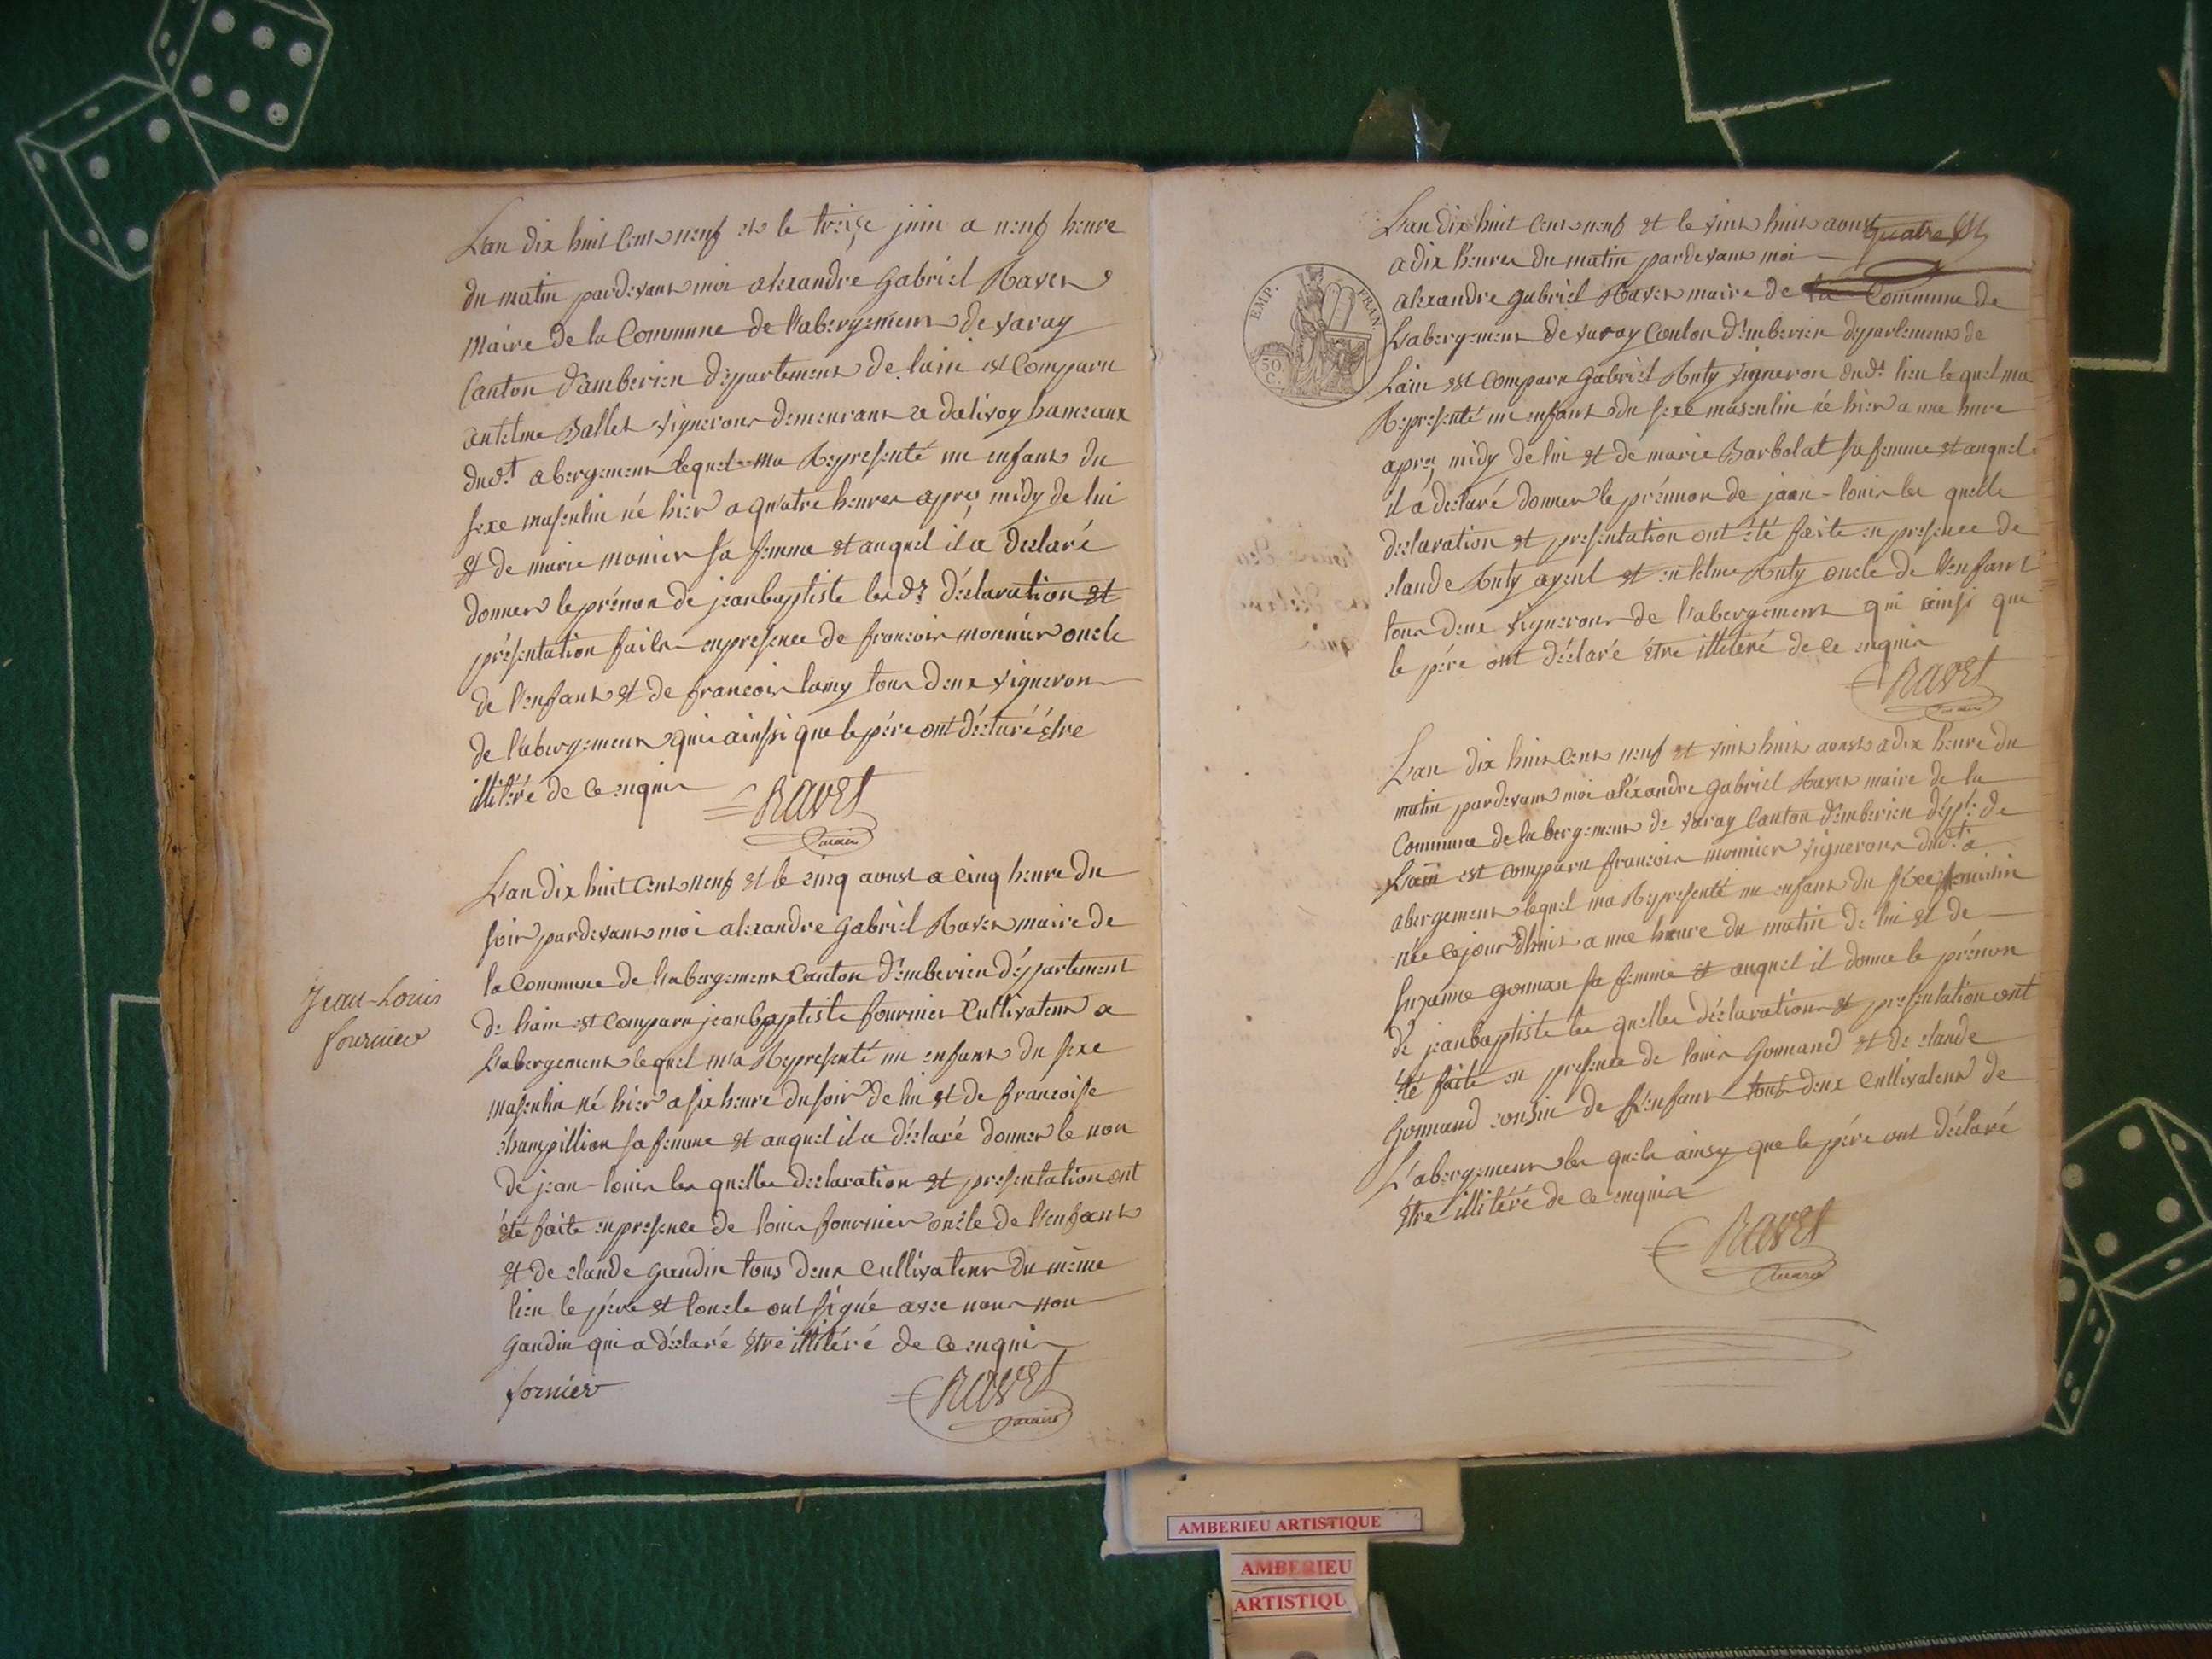 L'an dix huit cent neuf et le treize juin a neuf heure
du matin pardevant moi alexandre Gabriel Ravet
Maire de la Commune de l'abergement de Varay
Canton d'amberieu departement de lain est Comparu
antelme Ballet Vigneron demeurant a dalivoy hameaux
dudt. abergement lequel ma Representé un enfant du
sexe masculin né hier a quatre heures apres midy de lui
et de marie monier sa femme et auquel il a declaré
donner le prénon de jean baptiste lesd. déclaration et
présentation faites en presence de francois monnier oncle
de l'enfant et de francois lamy tous deux Vigneron
de l'abergement qui ainsi que le père ont déclaré être
illitéré de ce enquis
Ravet
maire
L'an dix huit cent neuf et le cinq aoust a cinq heure du
soir pardevant moi alexandre Gabriel Ravet maire de
la Commune de l'abergement Canton d'emberieu département
de l'ain est Comparu jean baptiste fournier Cultivateur a
l'abergement lequel m'a Representé un enfant du sexe
masculin né hier a six heure du soir de lui et de francoise
champillion sa femme et auquel il a déclaré donner le non
de jean-louis les quelles declaration et presentation ont
été faite en presence de louis fournier oncle de l'enfant
et de claude gaudin tous deux Cultivateur du même
lieu le père et loncle ont signé avec nous non
Gaudin qui a déclaré être illitéré de ce enquis
fornier
Ravet
maire
Jean-Louis
fournier
L'an dix huit cent neuf et le vint huit aoust quatre
a dix heures du matin pardevant moi
alexandre gabriel Ravet maire de la Commune de
L'abergement de Varay Canton d'emberieu departement de
Lain est Comparu Gabriel Ruty Vigneron dudt. lieu lequel ma
Representé un enfant du sexe masculin né hier a une hure
apres midy de lui et de marie Barbolat sa femme et auquel
il a declaré donner le prénnon de jean-louis les quelle
declaration et presentation ont été faite en presence de
claude Ruty ayeul et entelme Ruty oncle de l'enfant
tous deux Vignerons de l'abergement qui ainsi que
le père ont déclaré être illitéré de ce enquis
Ravet
maire
EMP. FRAN.
50 C.
L'an dix huit cent neuf et vint huit aoust a dix heure du
matin pardevant moi aléxandre gabriel Ravet maire de la
Commune de labergement de Varay Canton d'emberieu dépt. de
Lain est comparu francois monnier Vigneron dudt. a
abergement lequel ma Representé un enfant du sexe feminin
née cejourd'huit a une heure du matin de lui et de
Suzanne gonnan sa femme et auquel il donne le prénon
de jean baptiste les quelles déclarations et presentation ont
été faite en presence de louis Gonnand et de claude
Gonnand cousin de l'enfant tout deux Cultivateur de
L'abergement les quels ainsy que le père ont déclaré
être illitéré de ce enquis
Ravet
maire
AMBERIEU ARTISTIQUE
AMBERIEU
ARTISTIQU